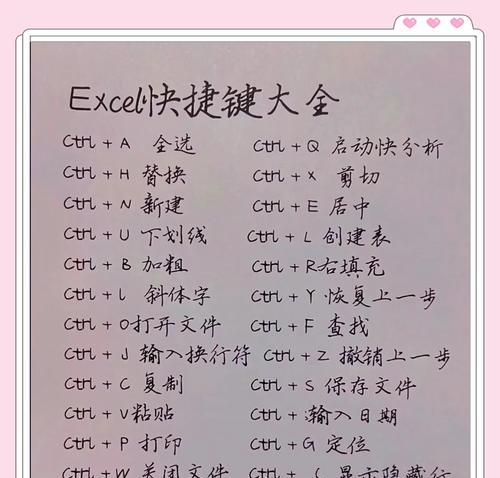 Excel快捷键大全
Ctrl + A 全选
Ctrl + Q 启动快分析
Ctrl + H 替换
Ctrl + X 剪切
Ctrl + N 新建
Ctrl + E 居中
Ctrl + U 下划线
Ctrl + L 创建表
Ctrl + B 加粗
Ctrl + R右填充
Ctrl + l 斜体字
Ctrl + Y 恢复上一步
Ctrl + O打开文件
Ctrl + F 查找
Ctrl + J 输入换行符
Ctrl + Z 撤销上一步
Ctrl + C 复制
Ctrl + S 保存文件
Ctrl + V粘贴
Ctrl + ;输入日期
Ctrl + P 打印
Ctrl + G 定位
Ctrl + W 关闭文件
Ctrl + 显示隐藏行